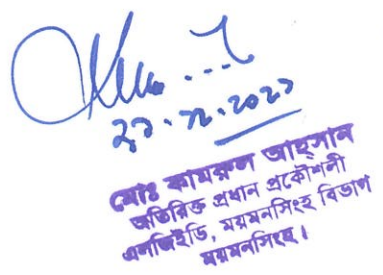 মোঃ কামরুল আহ্‌সান
অতিরিক্ত প্রধান প্রকৌশলী
এলজিইডি, ময়মনসিংহ বিভাগ
ময়মনসিংহ।